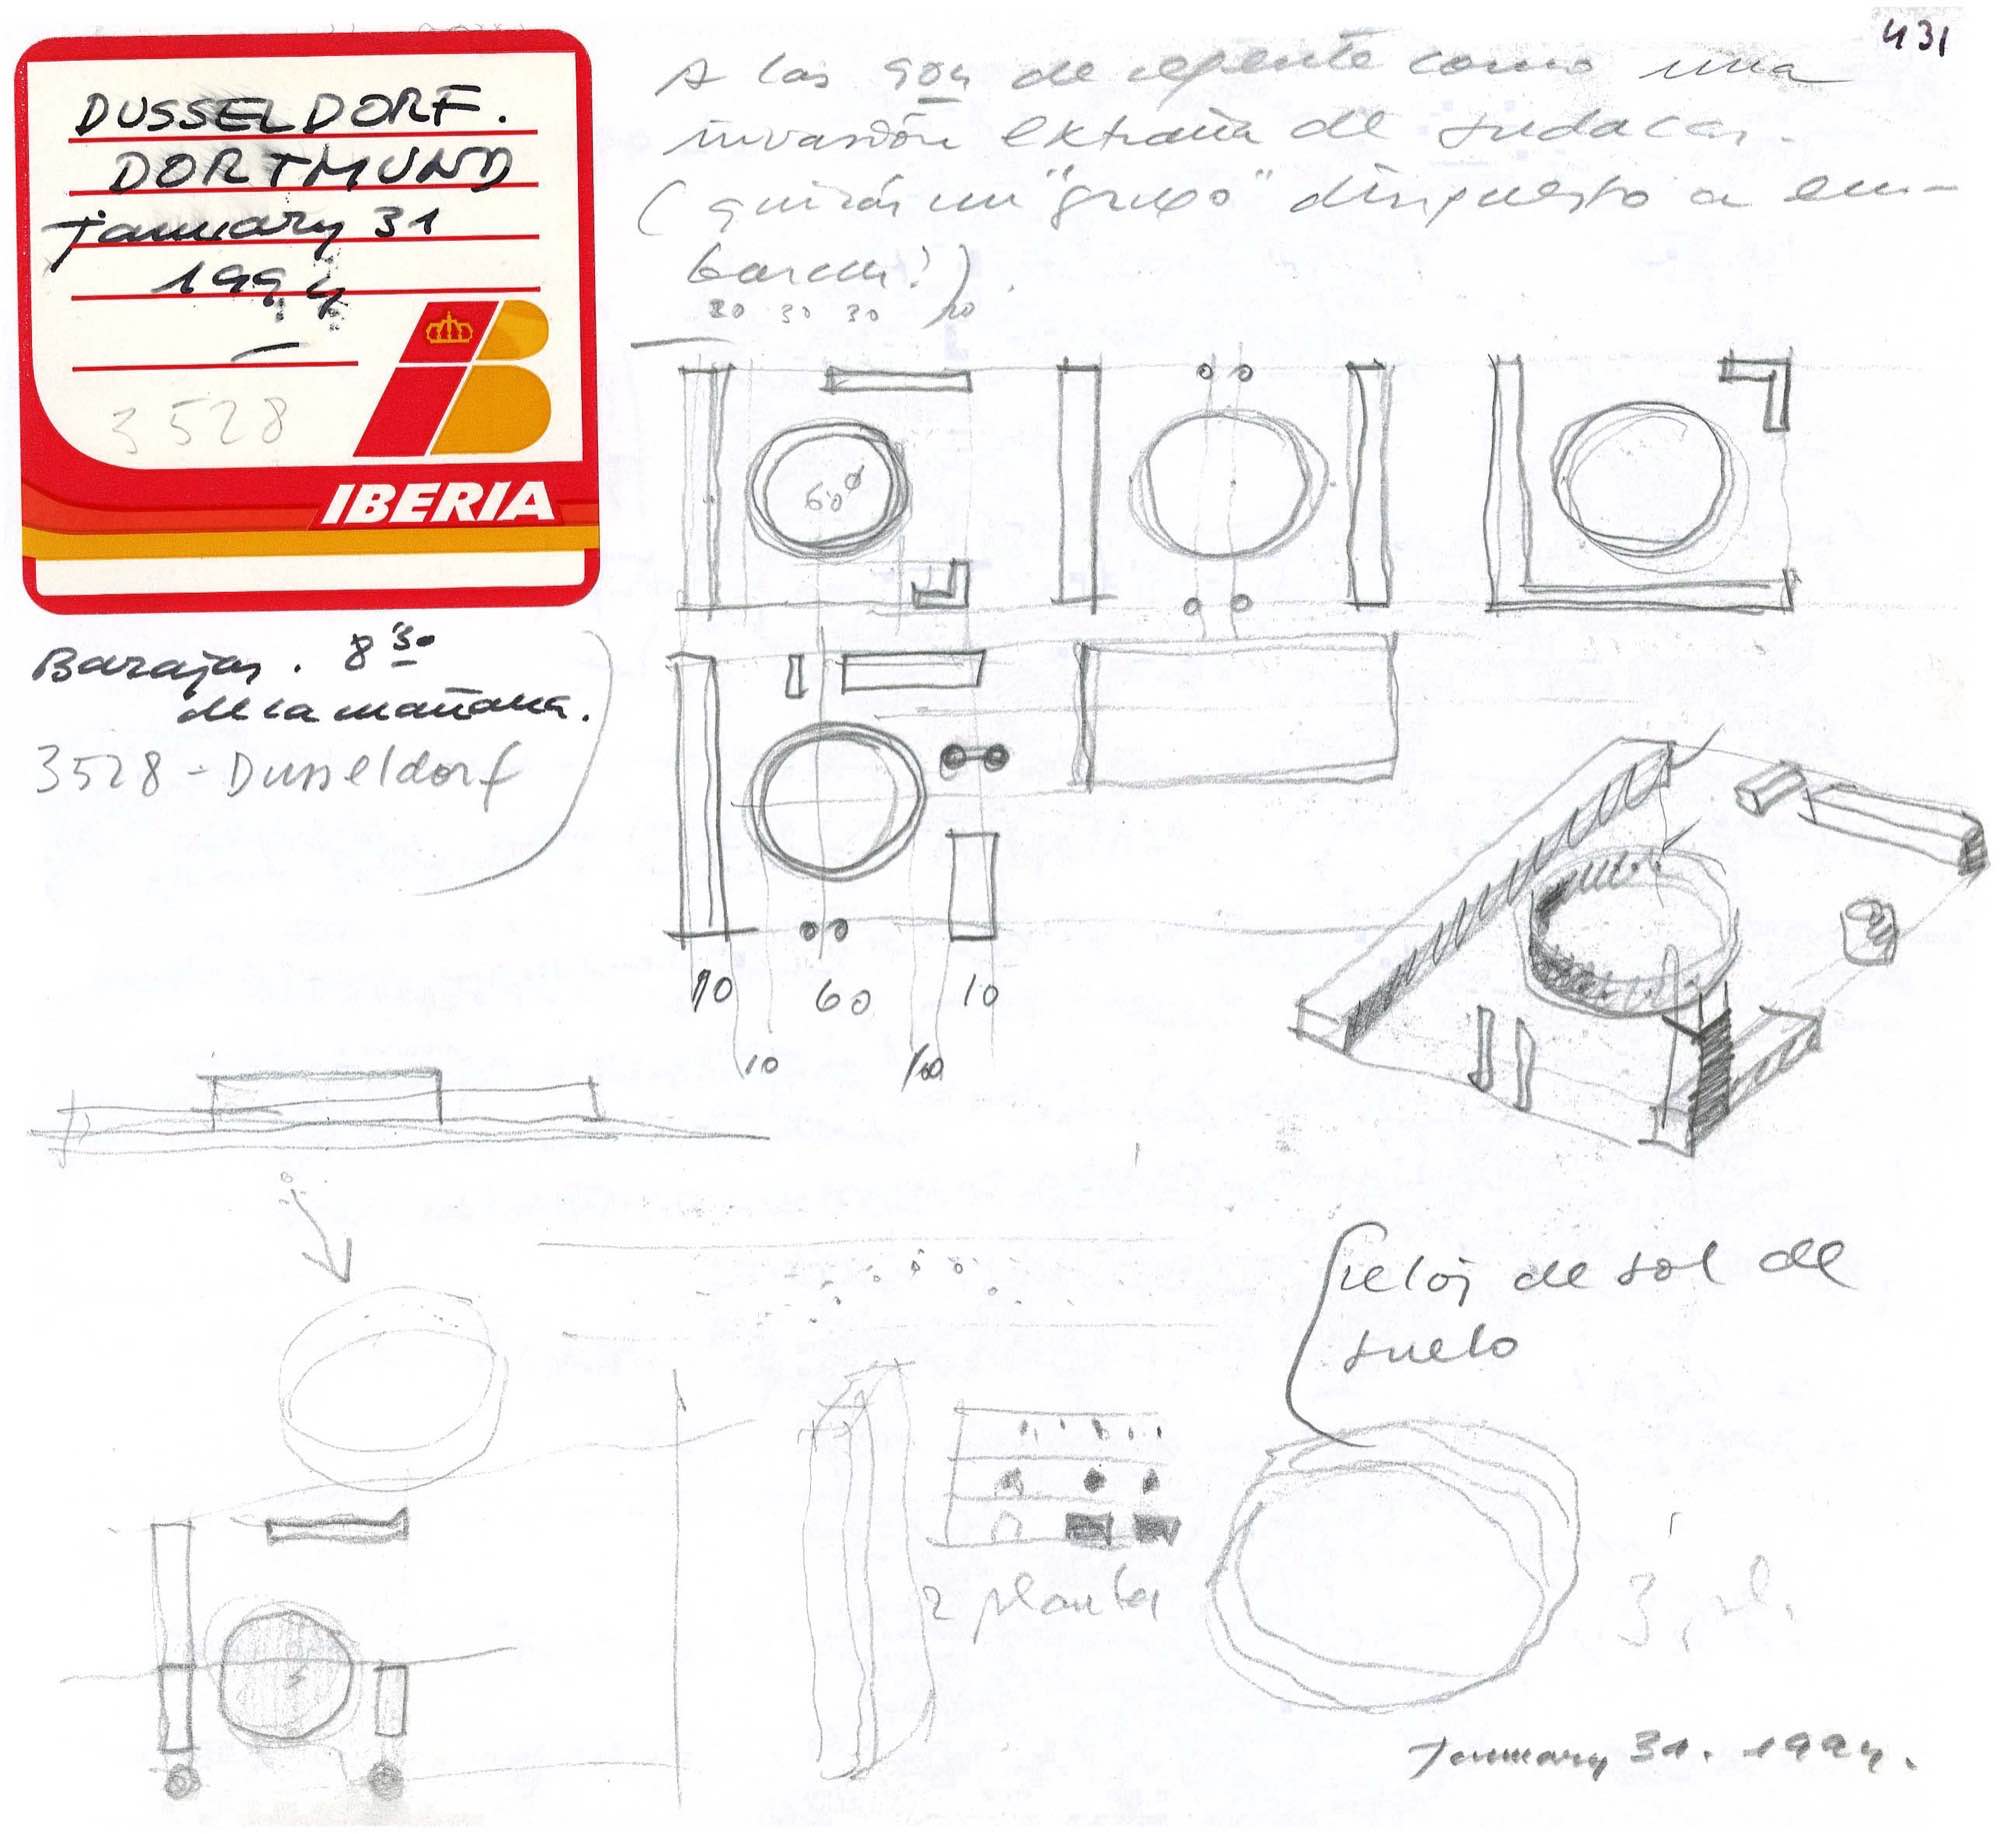 431
DUSSELDORF.
DORTMUND
January 31
1994
3528
IBERIA
Barajas. 8³⁰
de la mañana.
3528 - Dusseldorf
A las 9⁰⁴ de repente como una
invasión extraña de sudacas.
(quizás un "grupo" dispuesto a em-
barcar?).
30 30 30 20
60 ø
10 60 10
10 10
reloj de sol de
suelo
2 plantas
January 31. 1994.